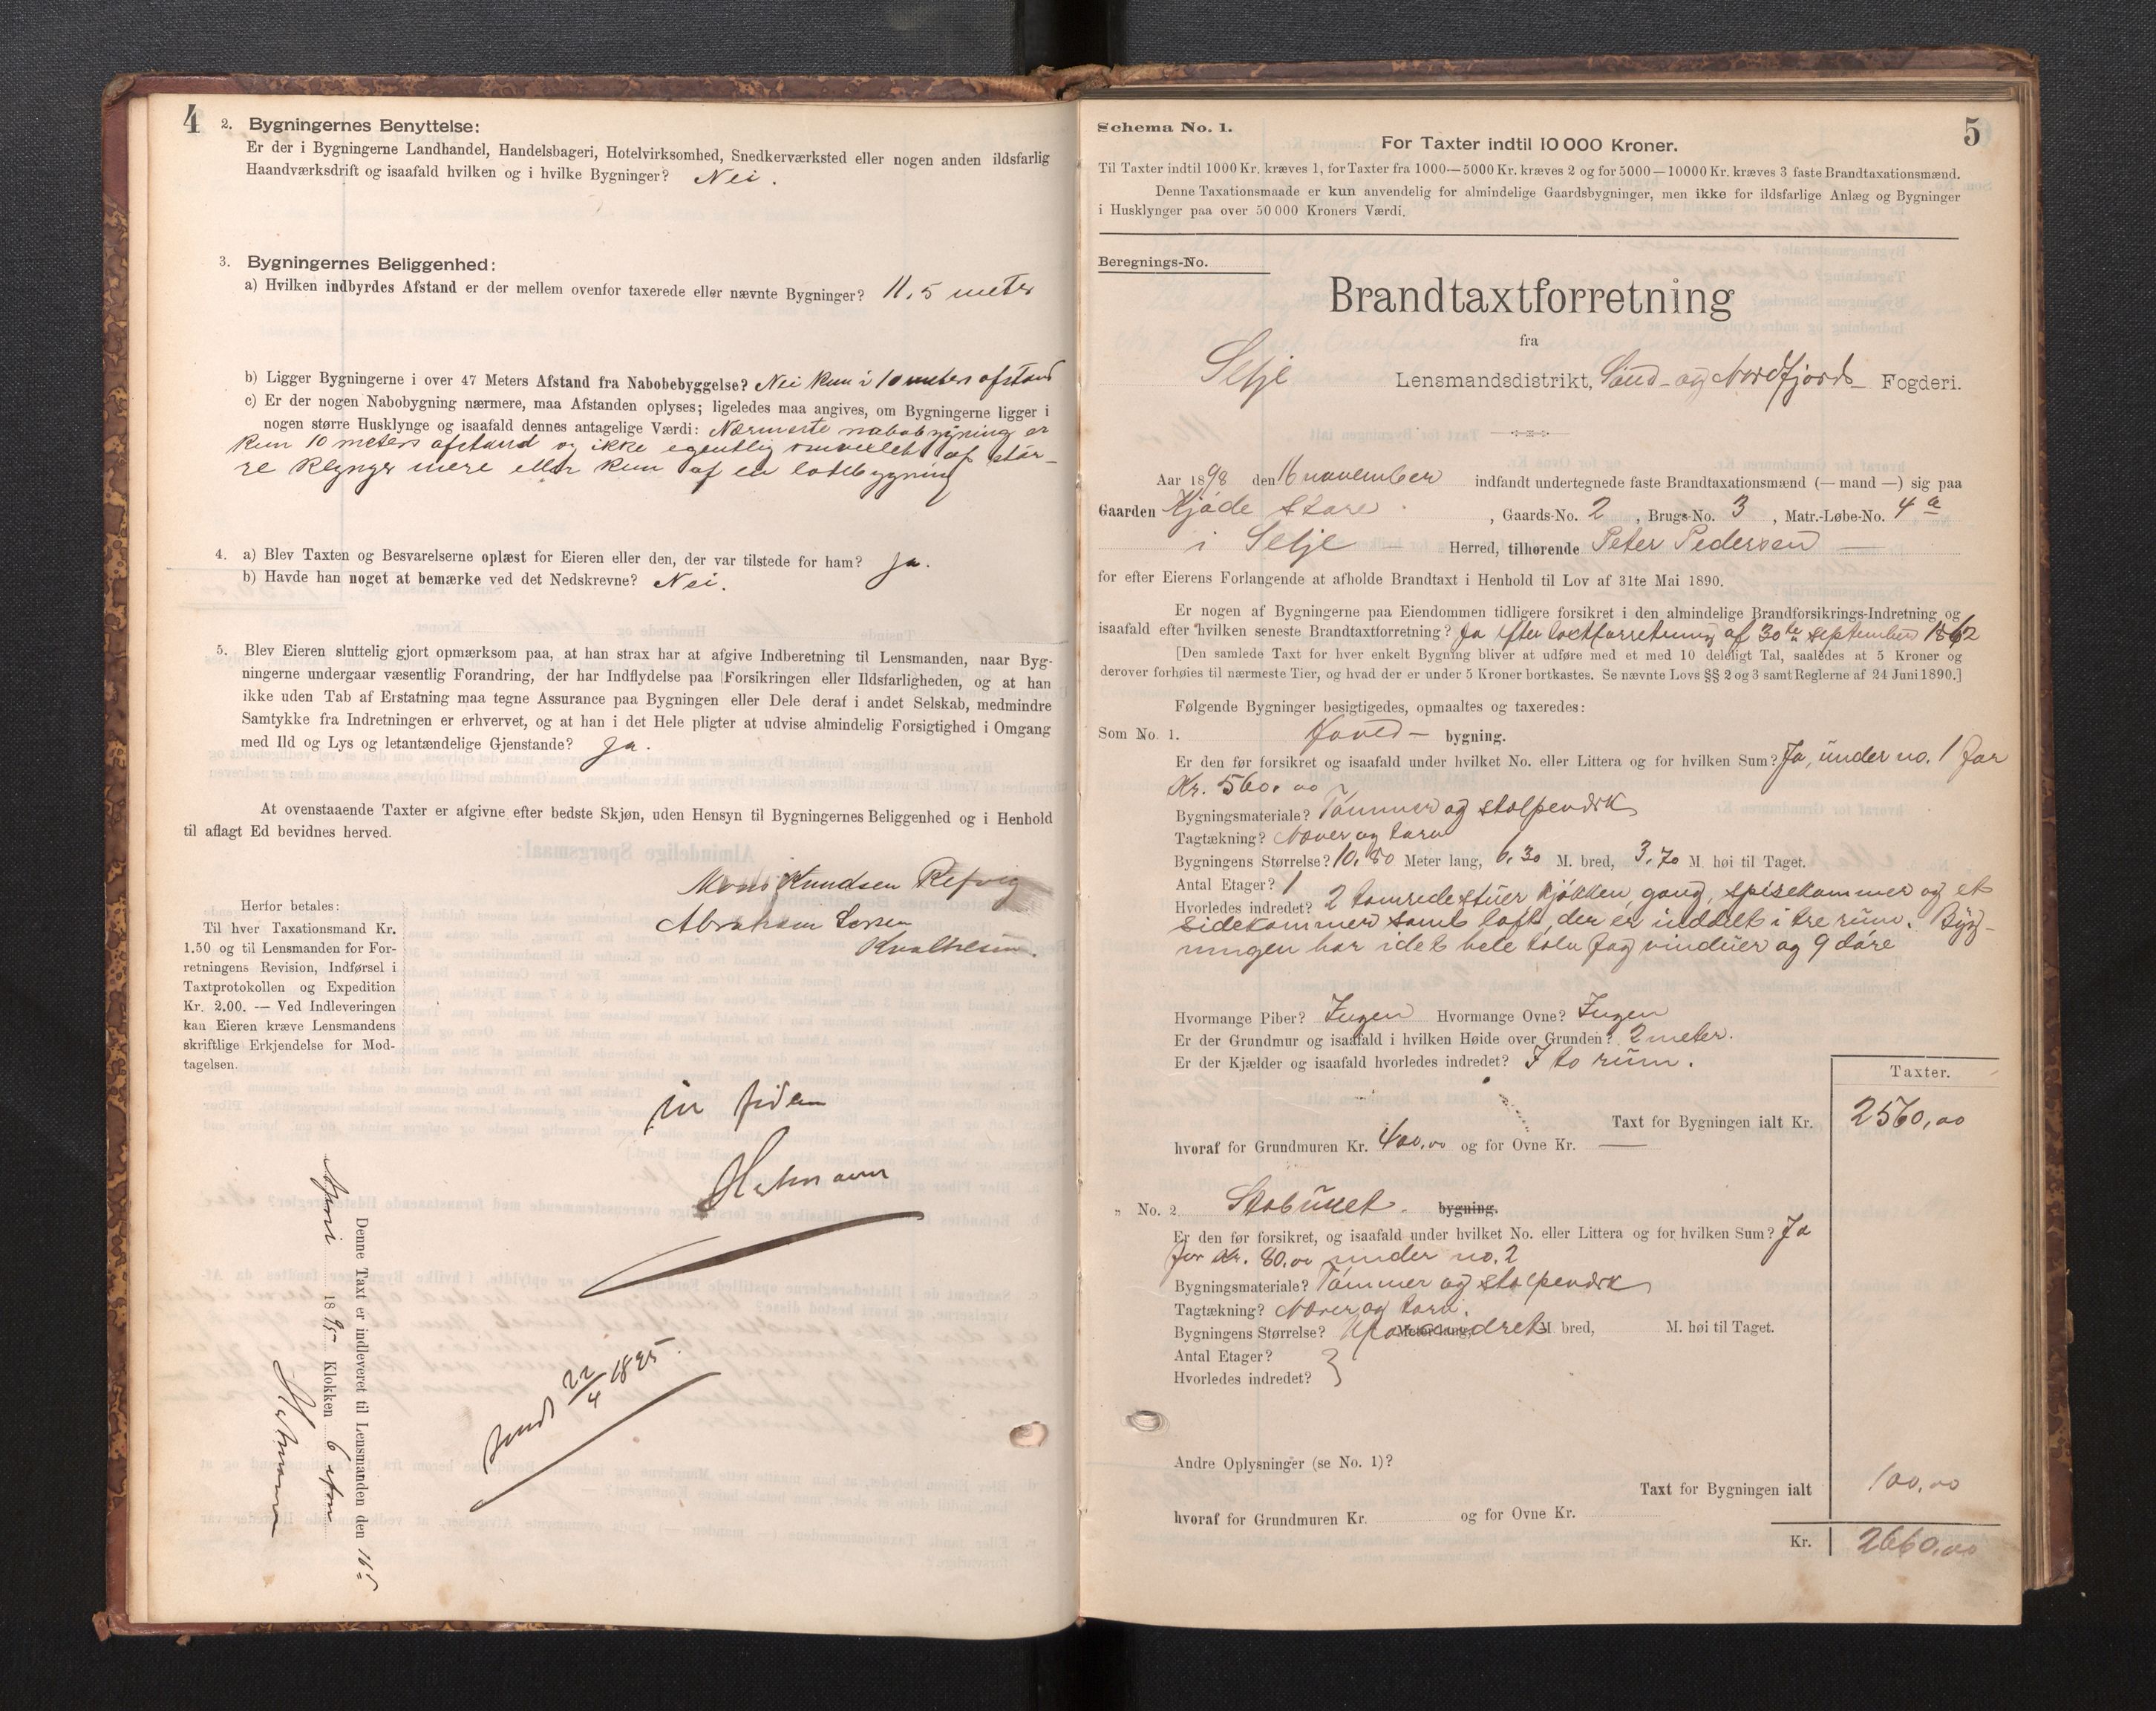 4
2. Bygningernes Benyttelse:
Er der i Bygningerne Landhandel, Handelsbageri, Hotelvirksomhed, Snedkerværksted eller nogen anden ildsfarlig
Haandværksdrift og isaafald hvilken og i hvilke Bygninger? Nei.
3. Bygningernes Beliggenhed:
a) Hvilken indbyrdes Afstand er der mellem ovenfor taxerede eller nævnte Bygninger? 11,5 meter
b) Ligger Bygningerne i over 47 Meters Afstand fra Nabobebyggelse? Nei kun i 10 meters afstand
c) Er der nogen Nabobygning nærmere, maa Afstanden oplyses; ligeledes maa angives, om Bygningerne ligger i
nogen større Husklynge og isaafald dennes antagelige Værdi: Nærmeste nabobygning er
kun 10 meters afstand og ikke egentlig omveilet af stør-
re klynger mere eller kun af en bygning
4. a) Blev Taxten og Besvarelserne oplæst for Eieren eller den, der var tilstede for ham? Ja.
b) Havde han noget at bemærke ved det Nedskrevne? Nei.
5. Blev Eieren sluttelig gjort opmærksom paa, at han strax har at afgive Indberetning til Lensmanden, naar Byg-
ningerne undergaar væsentlig Forandring, der har Indflydelse paa Forsikringen eller Ildsfarligheden, og at han
ikke uden Tab af Erstatning maa tegne Assurance paa Bygningen eller Dele deraf i andet Selskab, medmindre
Samtykke fra Indretningen er erhvervet, og at han i det Hele pligter at udvise almindelig Forsigtighed i Omgang
med Ild og Lys og letantændelige Gjenstande? Ja.
At ovenstaaende Taxter er afgivne efter bedste Skjøn, uden Hensyn til Bygningernes Beliggenhed og i Henhold
til aflagt Ed bevidnes herved.
Mons Knudsen Refvig
Abraham
Kvalheim.
Herfor betales:
Til hver Taxationsmand Kr.
1.50 og til Lensmanden for For-
retningens Revision, Indførsel i
Taxtprotokollen og Expedition
Kr. 2.00. — Ved Indleveringen
kan Eieren kræve Lensmandens
skriftlige Erkjendelse for Mod-
tagelsen.
in fidem
Denne Taxt er indleveret til Lensmanden den 16
April 1895 Klokken 6 eftm
sendt 22/4 1895.
5
Schema No. 1.
For Taxter indtil 10 000 Kroner.
Til Taxter indtil 1000 Kr. kræves 1, for Taxter fra 1000—5000 Kr. kræves 2 og for 5000—10000 Kr. kræves 3 faste Brandtaxationsmænd.
Denne Taxationsmaade er kun anvendelig for almindelige Gaardsbygninger, men ikke for ildsfarlige Anlæg og Bygninger
i Husklynger paa over 50 000 Kroners Værdi.
Beregnings-No.
Brandtaxtforretning
fra
Selje Lensmandsdistrikt, Sønd- og Nordfjords Fogderi.
Aar 1898 den 16 november indfandt undertegnede faste Brandtaxationsmænd (— mand —) sig paa
Gaarden Kjøde store, Gaards-No. 2, Brugs-No. 3, Matr.-Løbe-No. 4 a
i Selje Herred, tilhørende Peter Pedersen
for efter Eierens Forlangende at afholde Brandtaxt i Henhold til Lov af 31te Mai 1890.
Er nogen af Bygningerne paa Eiendommen tidligere forsikret i den almindelige Brandforsikrings-Indretning og
isaafald efter hvilken seneste Brandtaxtforretning? Ja efter taxtforretning af 30te september 1862
[Den samlede Taxt for hver enkelt Bygning bliver at udføre med et med 10 deleligt Tal, saaledes at 5 Kroner og
derover forhøies til nærmeste Tier, og hvad der er under 5 Kroner bortkastes. Se nævnte Lovs §§ 2 og 3 samt Reglerne af 24 Juni 1890.]
Følgende Bygninger besigtigedes, opmaaltes og taxeredes:
Som No. 1. Hoved- bygning.
Er den før forsikret og isaafald under hvilket No. eller Littera og for hvilken Sum? Ja, under no. 1 for
Kr. 560,00
Bygningsmateriale? Tømmer og stolpeværk
Tagtækning? Næver og torv
Bygningens Størrelse? 10,80 Meter lang, 6.30 M. bred, 3.70 M. høi til Taget.
Antal Etager? 1
Hvorledes indredet? 2 tømrede stuer, kjøkken, gang, spisekammer og et
sidekammer samt loft, der er inddelt i tre rum. Byg-
ningen har i det hele tolv fag vinduer og 9 døre
Hvormange Piber? Ingen Hvormange Ovne? Ingen
Er der Grundmur og isaafald i hvilken Høide over Grunden? 2 meter.
Er der Kjælder og isaafald hvorledes indredet? I to rum.
Taxter.
Taxt for Bygningen ialt Kr. 2560,00
hvoraf for Grundmuren Kr. 400,00 og for Ovne Kr. —
„ No. 2 Staburet. bygning.
Er den før forsikret, og isaafald under hvilket No. eller Littera og for hvilken Sum? Ja
for Kr. 80,00 under no. 2
Bygningsmateriale? Tømmer og stolpeværk
Tagtækning? Næver og torv.
Bygningens Størrelse? Uforandret Meter lang, M. bred, M. høi til Taget.
Antal Etager?
Hvorledes indredet?
Andre Oplysninger (se No. 1)?
Taxt for Bygningen ialt 100,00
hvoraf for Grundmuren Kr. og for Ovne Kr.
Kr. 2660,00